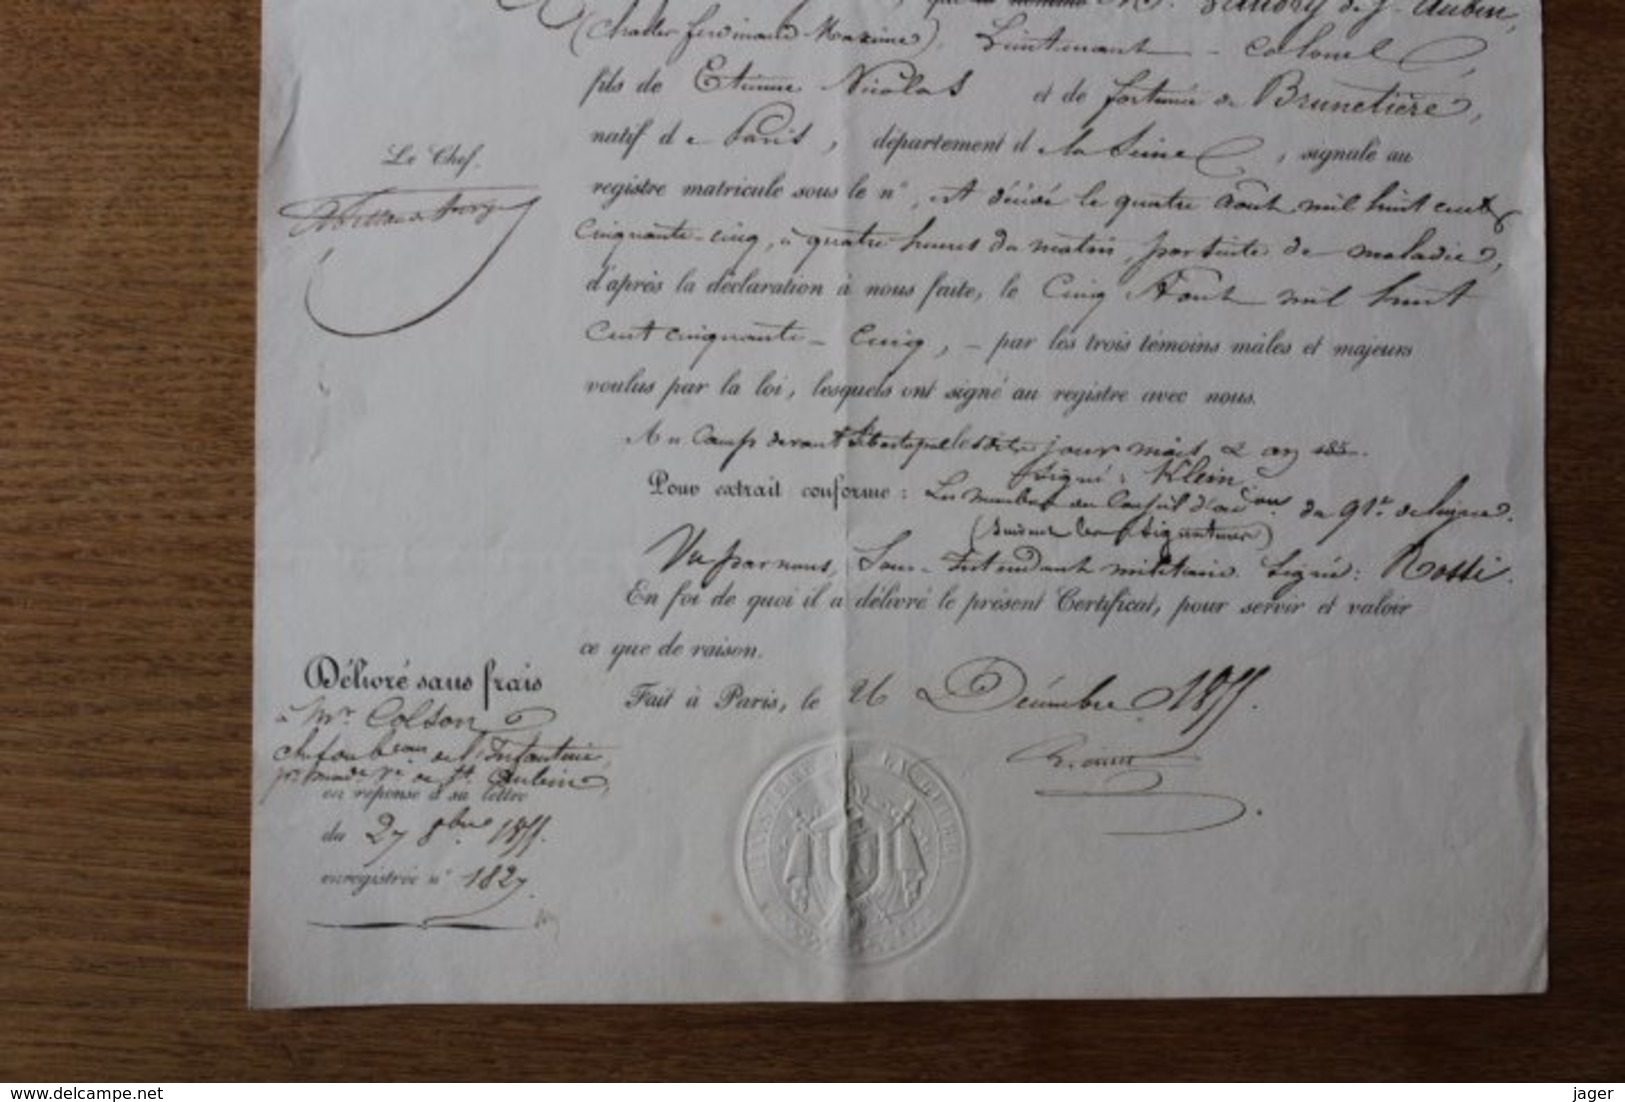 de St Aubin,
(Charles Ferdinand Maxime), Lieutenant - Colonel,
fils de Etienne Nicolas et de fortunée de Brunetière,
natif de Paris, département de la Seine, signalé au
registre matricule sous le n°, est décédé le quatre Août mil huit cent
Cinquante-cinq, à quatre heures du matin, par suite de maladie,
d'après la déclaration à nous faite, le Cinq Août mil huit
Cent cinquante-Cinq, - par les trois témoins mâles et majeurs
voulus par la loi, lesquels ont signé au registre avec nous.
Au Camp devant Sébastopol les dits jour mois & an 185
Signé : Klein
Pour extrait conforme : Les membres du Conseil d'adon du 91e de ligne.
(Suivent les Signatures)
Vu par nous, Sous-Intendant militaire. Signé : Rossi.
En foi de quoi il a délivré le présent Certificat, pour servir et valoir
ce que de raison.
Fait à Paris, le 26 Décembre 1855.
Le Chef.
Délivré sans frais
à Mr Colson
chef du beau de l'Infanterie,
pr made Ve de St Aubin,
en réponse à sa lettre
du 27 8bre 1855.
enregistrée n° 1827
jager